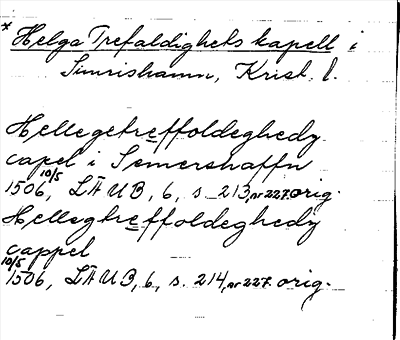 * Helga Trefaldighets kapell i
Simrishamn, Krist. l.
Hellegetreffoldeghedz
capel i Semershaffn
1506, 10/5 LÄUB, 6, s. 213, nr 227. orig.
Hellegtreffoldeghedz
cappel
1506, 10/5 LÄUB, 6, s. 214, nr 227. orig.